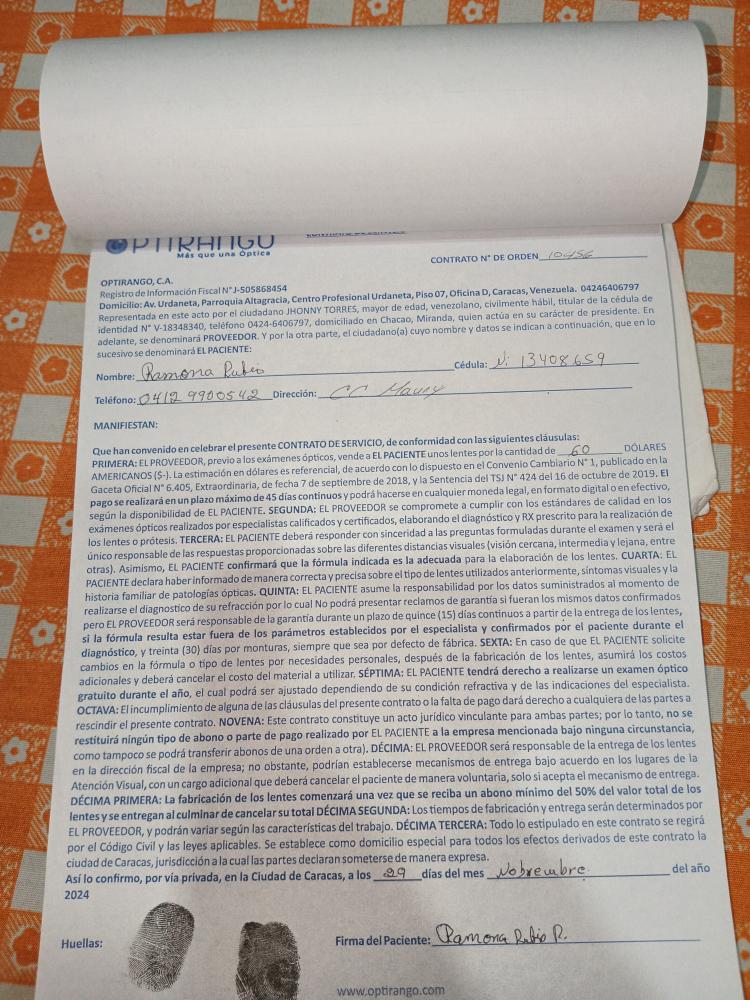 OPTIRANGO
Más que una Óptica
CONTRATO N° DE ORDEN 10456
OPTIRANGO, C.A.
Registro de Información Fiscal N°J-505868454
Domicilio: Av. Urdaneta, Parroquia Altagracia, Centro Profesional Urdaneta, Piso 07, Oficina D, Caracas, Venezuela. 04246406797
Representada en este acto por el ciudadano JHONNY TORRES, mayor de edad, venezolano, civilmente hábil, titular de la cédula de
identidad N° V-18348340, teléfono 0424-6406797, domiciliado en Chacao, Miranda, quien actúa en su carácter de presidente. En
adelante, se denominará PROVEEDOR. Y por la otra parte, el ciudadano(a) cuyo nombre y datos se indican a continuación, que en lo
sucesivo se denominará EL PACIENTE:
Nombre: Ramona Rubio Cédula: V: 13408659
Teléfono: 0412 9900542 Dirección: CC
MANIFIESTAN:
Que han convenido en celebrar el presente CONTRATO DE SERVICIO, de conformidad con las siguientes cláusulas:
PRIMERA: EL PROVEEDOR, previo a los exámenes ópticos, vende a EL PACIENTE unos lentes por la cantidad de 60 DÓLARES
AMERICANOS ($-). La estimación en dólares es referencial, de acuerdo con lo dispuesto en el Convenio Cambiario N° 1, publicado en la
Gaceta Oficial N° 6.405, Extraordinaria, de fecha 7 de septiembre de 2018, y la Sentencia del TSJ N° 424 del 16 de octubre de 2019. El
pago se realizará en un plazo máximo de 45 días continuos y podrá hacerse en cualquier moneda legal, en formato digital o en efectivo,
según la disponibilidad de EL PACIENTE. SEGUNDA: EL PROVEEDOR se compromete a cumplir con los estándares de calidad en los
exámenes ópticos realizados por especialistas calificados y certificados, elaborando el diagnóstico y RX prescrito para la realización de
los lentes o prótesis. TERCERA: EL PACIENTE deberá responder con sinceridad a las preguntas formuladas durante el examen y será el
único responsable de las respuestas proporcionadas sobre las diferentes distancias visuales (visión cercana, intermedia y lejana, entre
otras). Asimismo, EL PACIENTE confirmará que la fórmula indicada es la adecuada para la elaboración de los lentes. CUARTA: EL
PACIENTE declara haber informado de manera correcta y precisa sobre el tipo de lentes utilizados anteriormente, síntomas visuales y la
historia familiar de patologías ópticas. QUINTA: EL PACIENTE asume la responsabilidad por los datos suministrados al momento de
realizarse el diagnostico de su refracción por lo cual No podrá presentar reclamos de garantía si fueran los mismos datos confirmados
pero EL PROVEEDOR será responsable de la garantía durante un plazo de quince (15) días continuos a partir de la entrega de los lentes,
si la fórmula resulta estar fuera de los parámetros establecidos por el especialista y confirmados por el paciente durante el
diagnóstico, y treinta (30) días por monturas, siempre que sea por defecto de fábrica. SEXTA: En caso de que EL PACIENTE solicite
cambios en la fórmula o tipo de lentes por necesidades personales, después de la fabricación de los lentes, asumirá los costos
adicionales y deberá cancelar el costo del material a utilizar. SÉPTIMA: EL PACIENTE tendrá derecho a realizarse un examen óptico
gratuito durante el año, el cual podrá ser ajustado dependiendo de su condición refractiva y de las indicaciones del especialista.
OCTAVA: El incumplimiento de alguna de las cláusulas del presente contrato o la falta de pago dará derecho a cualquiera de las partes a
rescindir el presente contrato. NOVENA: Este contrato constituye un acto jurídico vinculante para ambas partes; por lo tanto, no se
restituirá ningún tipo de abono o parte de pago realizado por EL PACIENTE a la empresa mencionada bajo ninguna circunstancia,
como tampoco se podrá transferir abonos de una orden a otra). DÉCIMA: EL PROVEEDOR será responsable de la entrega de los lentes
en la dirección fiscal de la empresa; no obstante, podrían establecerse mecanismos de entrega bajo acuerdo en los lugares de la
Atención Visual, con un cargo adicional que deberá cancelar el paciente de manera voluntaria, solo si acepta el mecanismo de entrega.
DÉCIMA PRIMERA: La fabricación de los lentes comenzará una vez que se reciba un abono mínimo del 50% del valor total de los
lentes y se entregan al culminar de cancelar su total DÉCIMA SEGUNDA: Los tiempos de fabricación y entrega serán determinados por
EL PROVEEDOR, y podrán variar según las características del trabajo. DÉCIMA TERCERA: Todo lo estipulado en este contrato se regirá
por el Código Civil y las leyes aplicables. Se establece como domicilio especial para todos los efectos derivados de este contrato la
ciudad de Caracas, jurisdicción a la cual las partes declaran someterse de manera expresa.
Así lo confirmo, por vía privada, en la Ciudad de Caracas, a los 29 días del mes Nobrembre del año
2024
Huellas: Firma del Paciente: Ramona Rubio R.
www.optirango.com